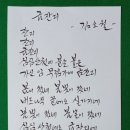 금잔디
- 김소월 -
잔디
잔디
금잔디
심심산천에 붙은 불은
가신 님 무덤가에 금잔디
봄이 왔네 봄빛이 왔네
버드나무 끝에도 실가지에
봄빛이 왔네 봄날이 왔네
심심산천에도 금잔디에